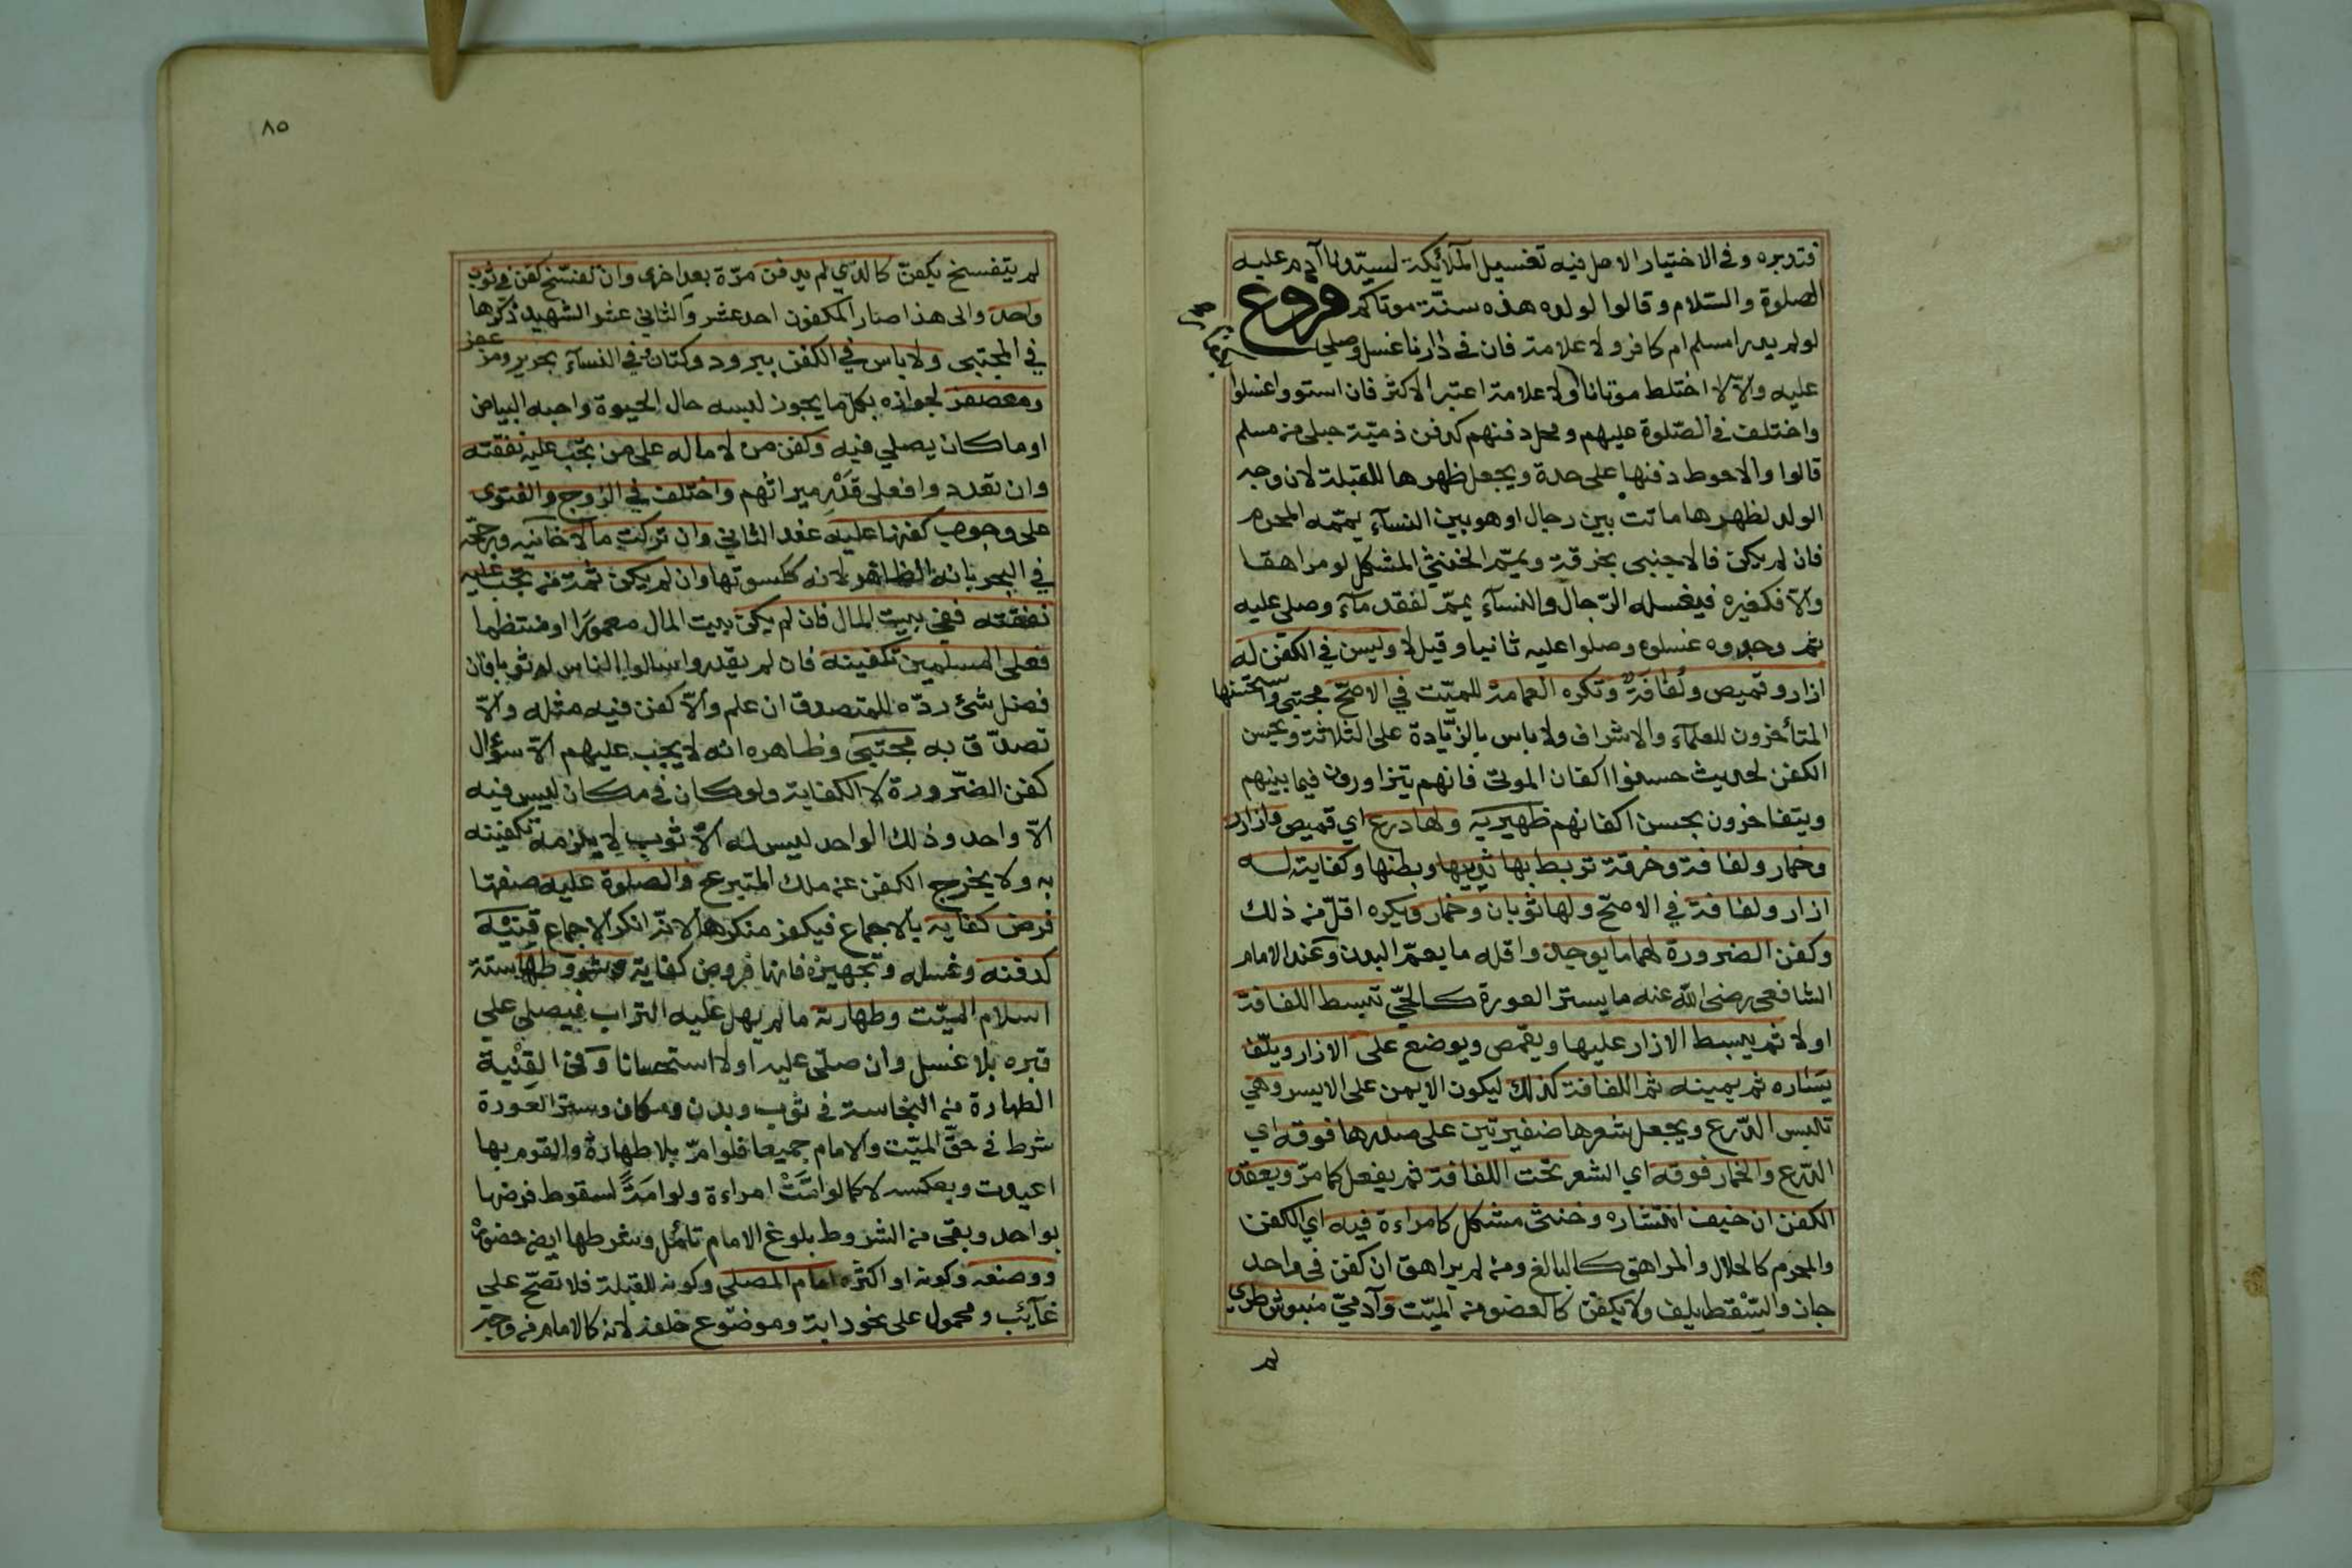 فتدبره وفي الاختيار الاصل فيه تغسيل الملائكة لسيدنا آدم عليه
الصلوة والسلام وقالوا لولده هذه سنة موتاكم فروع
لو لم يدر امسلم ام كافر ولا علامة فان في دارنا غسل وصلي
عليه والا لا اختلط موتانا ولا علامة اعتبر الاكثر فان استووا غسلوا
واختلف في الصلوة عليهم ومحل دفنهم كدفن ذمية حبلى من مسلم
قالوا والاحوط دفنها على حدة ويجعل ظهرها للقبلة لان وجه
الولد لظهرها ماتت بين رجال او هو بين النسآء يممه المحرم
فان لم يكن فالاجنبي بخرقة ويمم الخنثي المشكل لو مراهقا
والا فكغيره فيغسله الرجال والنسآء يمم لفقد مآء وصلى عليه
ثم وجدوه غسلوه وصلوا عليه ثانيا وقيل لا وليس في الكفن له
ازار وقميص ولفافة وتكره العمامة للميت في الاصح مجتبى واستحسنها
المتأخرون للعلمآء والاشراف ولا باس بالزيادة على الثلاثة ويحسن
الكفن لحديث حسنوا اكفان الموتى فانهم يتزاورون فيما بينهم
ويتفاخرون بحسن اكفانهم ظهيرية ولها درع اي قميص وازار
وخمار ولفافة وخرقة تربط بها ثدييها وبطنها وكفاية له
ازار ولفافة في الاصح ولها ثوبان وخمار ويكره اقل من ذلك
وكفن الضرورة لهما ما يوجد واقله ما يعم البدن وعند الامام
الشافعي رضى الله عنه ما يستر العورة كالحي تبسط اللفافة
اولا ثم يبسط الازار عليها ويقمص ويوضع على الازار ويلف
يساره ثم يمينه ثم اللفافة كذلك ليكون الايمن على الايسر وهي
تلبس الدرع ويجعل شعرها ضفيرتين على صدرها فوقه اي
الدرع والخمار فوقه اي الشعر تحت اللفافة ثم يفعل كما مر ويعقد
الكفن ان خيف انتشاره وخنثى مشكل كامراءة فيه اي الكفن
والمحرم كالحلال والمراهق كالبالغ ومن لم يراهق ان كفن في واحد
جاز والسقط يلف ولا يكفن كالعضو من الميت وآدمي منبوش طري
لم
٨٥
لم يتفسخ يكفن كالذي لم يدفن مرة بعد اخرى وان تفسخ كفن في ثوب
واحد والى هذا صار المكفنون احد عشر والثاني عشر الشهيد ذكرها
في المجتبى ولا باس في الكفن ببرود وكتان وفي النسآء بحرير ومزعفر
ومعصفر لجوازه بكل ما يجوز لبسه حال الحيوة واحبه البياض
او ما كان يصلي فيه وكفن من لا مال له على من تجب عليه نفقته
وان تعددوا فعلى قدر ميراثهم واختلف في الزوج والفتوى
على وجوب كفنها عليه عند الثاني وان تركت مالا خانيه ورجحه
في البحر بانه الظاهر لانه ككسوتها وان لم يكن ثمة من تجب عليه
نفقته ففي بيت المال فان لم يكن بيت المال معمورا او منتظما
فعلى المسلمين تكفينه فان لم يقدروا سالوا الناس له ثوبا فان
فضل شئ رده للمتصدق ان علم والا كفن فيه مثله والا
تصدق به مجتبى وظاهره انه لا يجب عليهم الا سؤال
كفن الضرورة لا الكفاية ولو كان في مكان ليس فيه
الا واحد وذلك الواحد ليس له الا ثوب لا يلزمه تكفينه
به ولا يخرج الكفن عن ملك المتبرع والصلوة عليه صفتها
فرض كفاية بالاجماع فيكفر منكرها لانه انكر الاجماع قنية
كدفنه وغسله وتجهيزه فانها فروض كفاية وشروطها ستة
اسلام الميت وطهارته ما لم يهل عليه التراب فيصلي على
قبره بلا غسل وان صلى عليه اولا استحسانا وفي القنية
الطهارة من النجاسة في ثوب وبدن ومكان وستر العورة
شرط في حق الميت والامام جميعا فلو ام بلا طهارة والقوم بها
اعيدت وبعكسه لا كما لو امت امراءة ولو امة لسقوط فرضها
بواحد وبقى من الشروط بلوغ الامام تأمل وشرطها ايضا حضوره
ووضعه وكونه او اكثره امام المصلي وكونه للقبلة فلا تصح على
غآئب ومحمول على نحو دابة وموضوع خلفه لانه كالامام من وجه